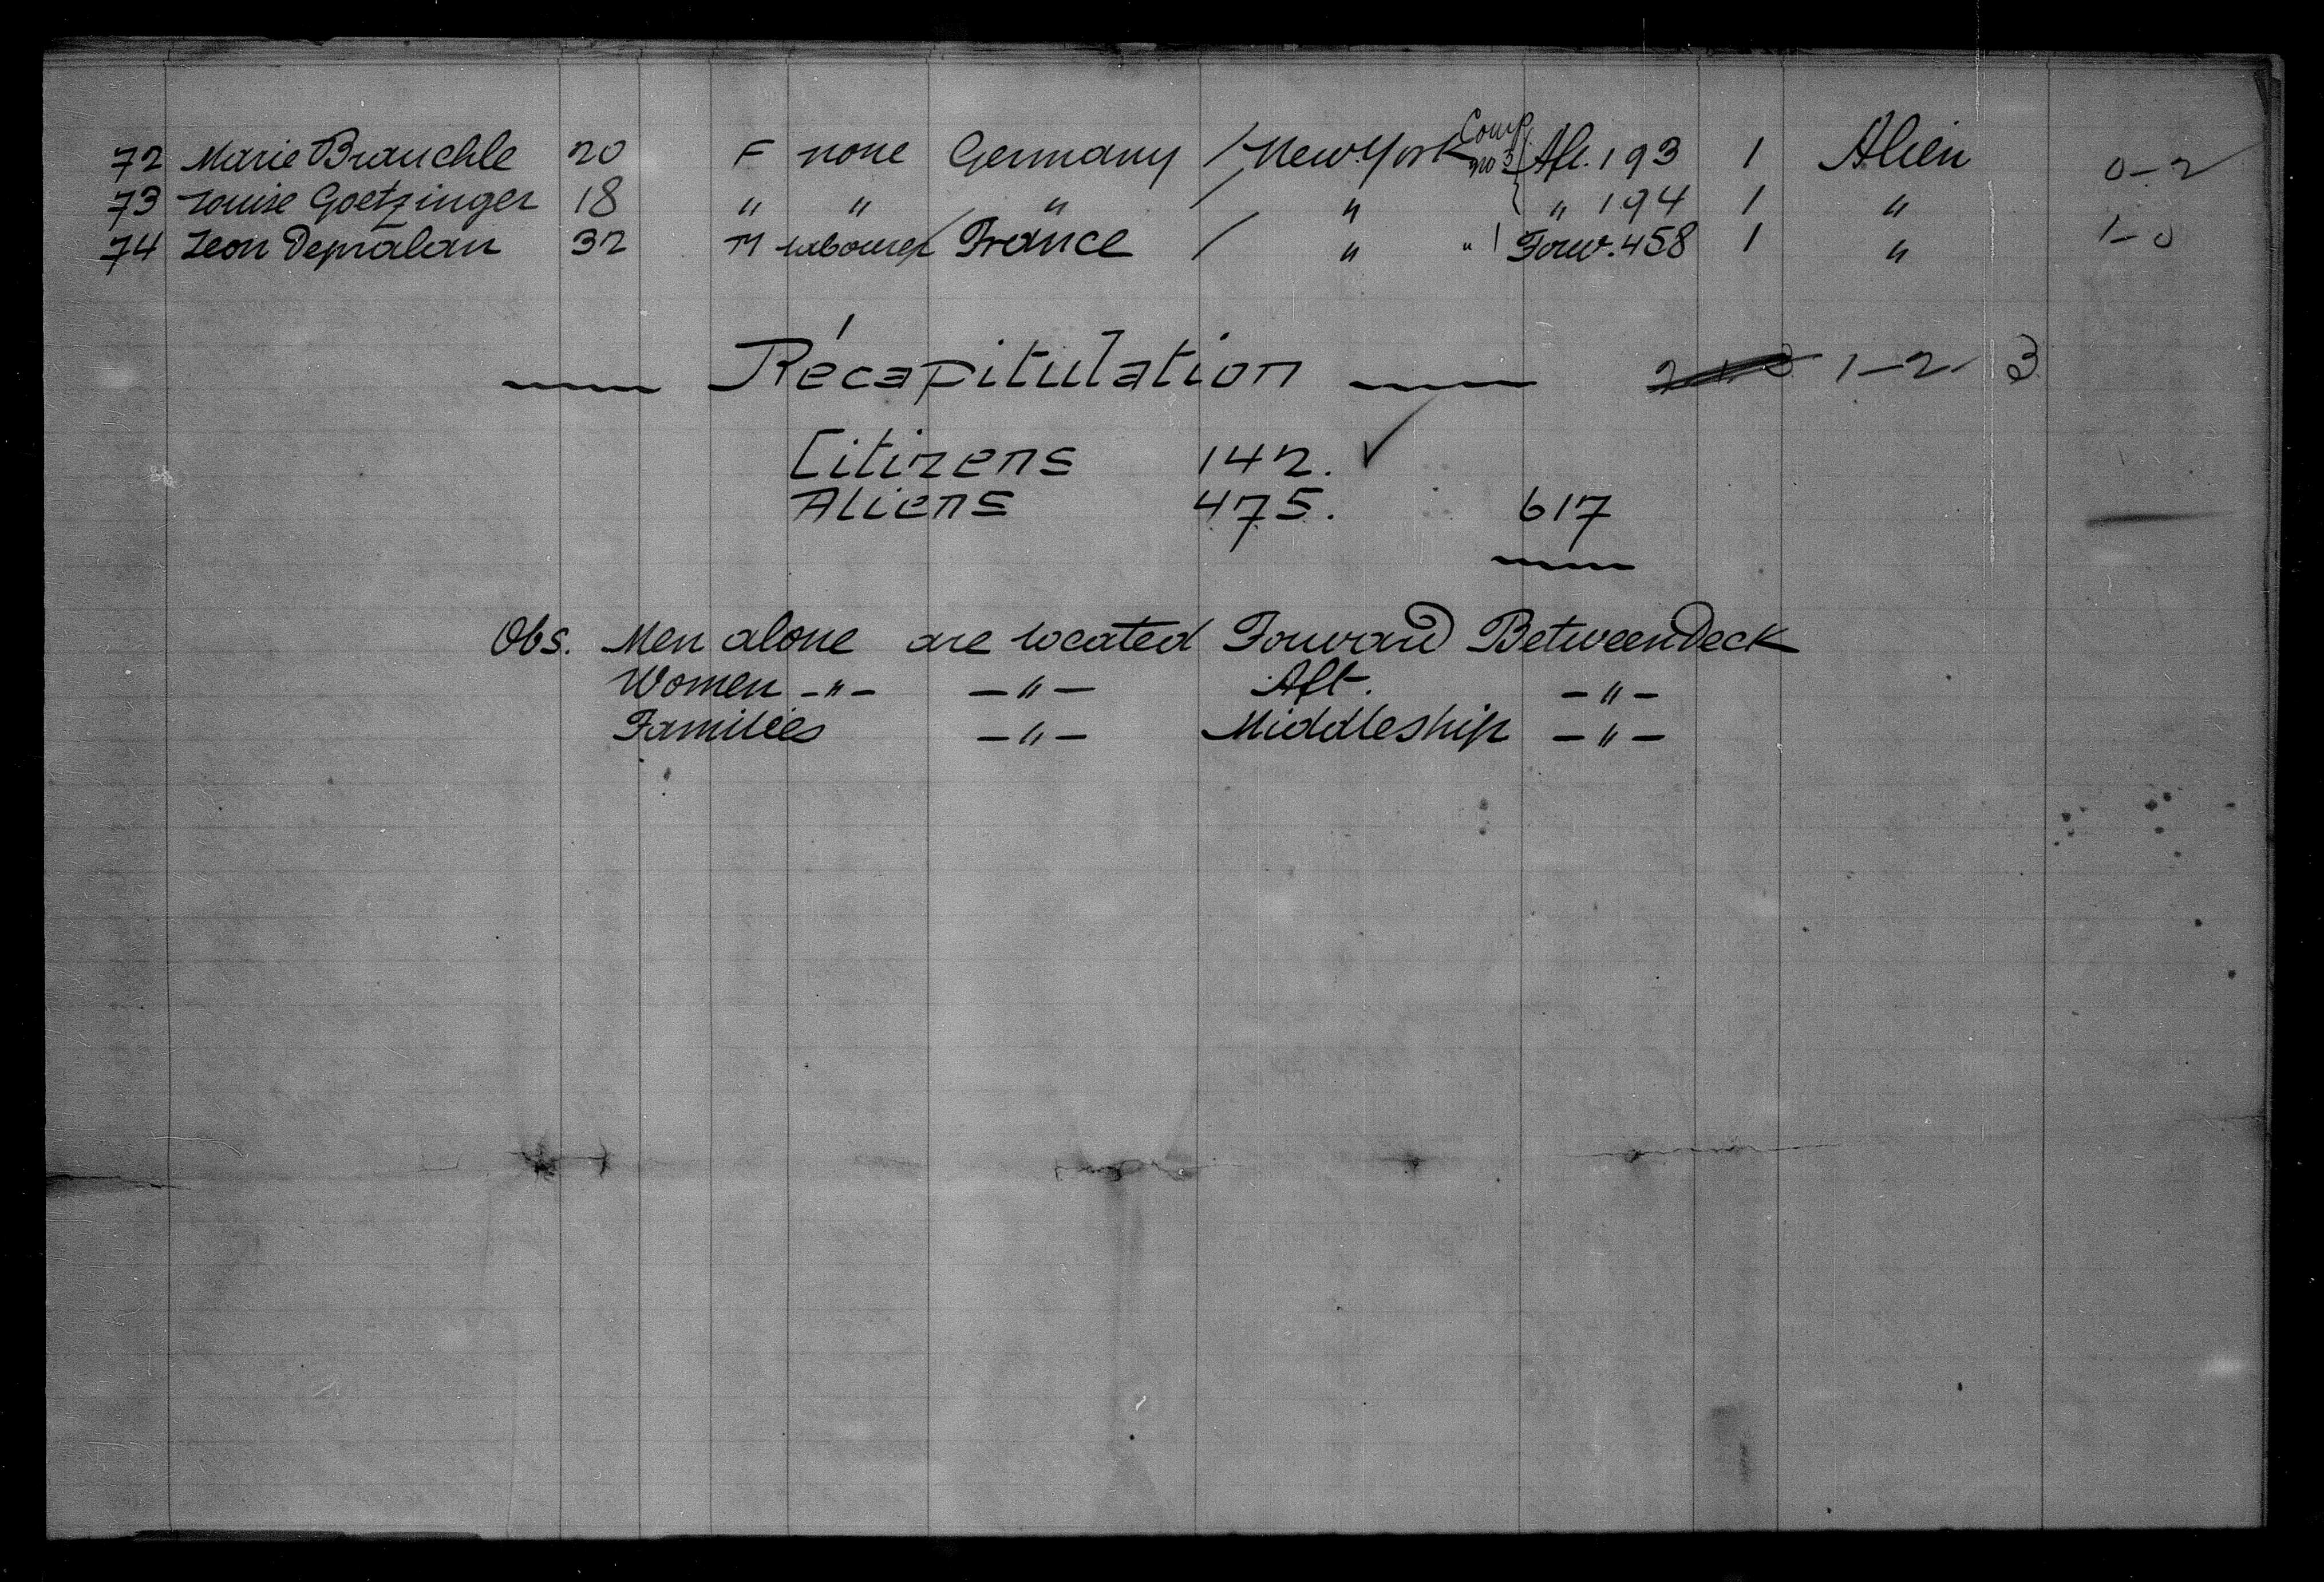 72 Marie Brauchle 20 F none Germany / New York Comp no 3 { Aft. 193 1 Alien 0-2
73 Louise Goetzinger 18 " " " / " " 194 1 "
74 Leon Depralan 32 M labourer / France / " " 1 Forw. 458 1 " 1-0
Récapitulation 1-2 3
Citizens 142. ✓
Aliens 475. 617
Obs. Men alone are located Forward BetweenDeck
Women -"- -"- Aft. -"-
Families -"- Middleship -"-